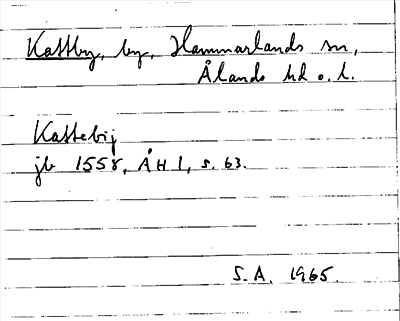 Kattby, by, Hammarlands sn,
Ålands hd o. l.
Kattebij
jb 1558, ÅH 1, s. 63.
S. A. 1965.